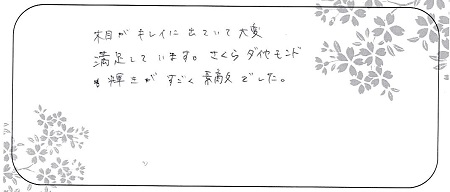 木目がキレイに出ていて大変
満足しています。さくらダイヤモンド
も輝きがすごく素敵でした。